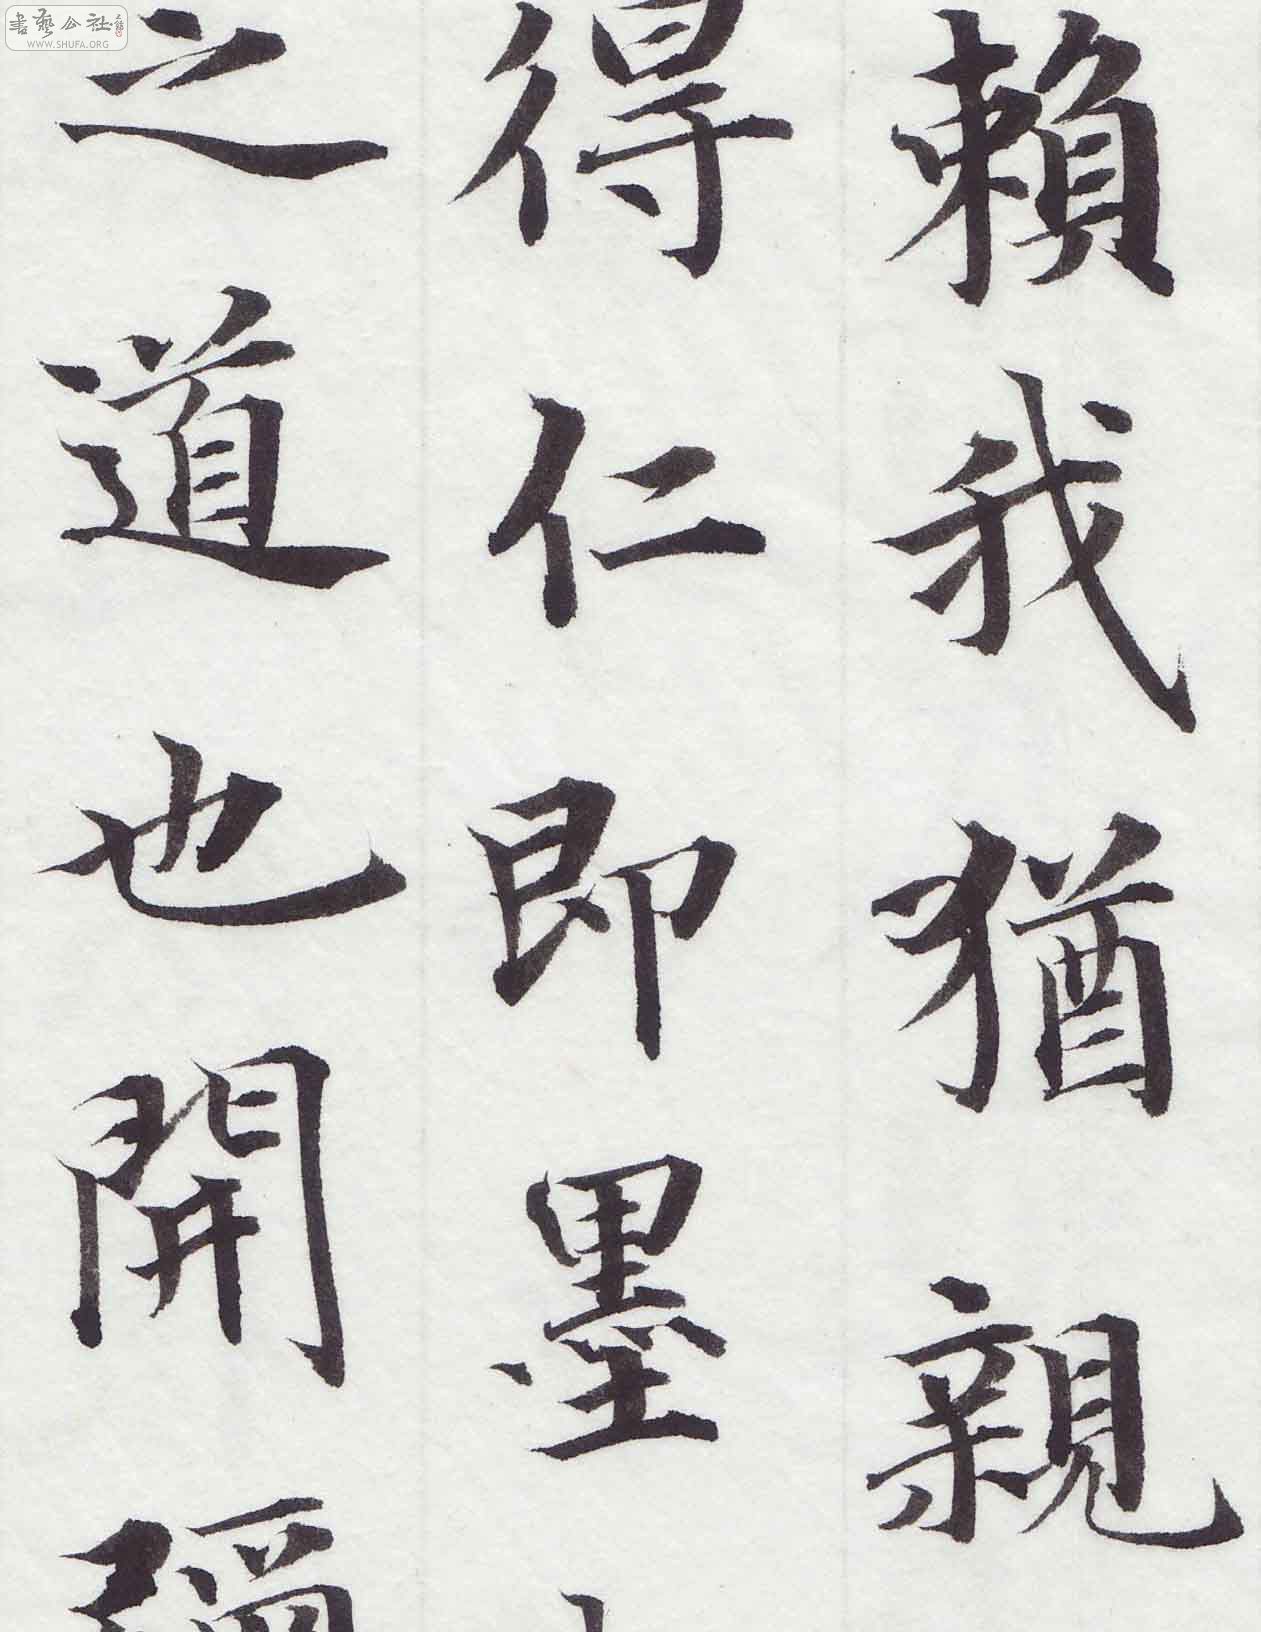 賴我猶親
得仁即墨
之道也開彌
書藝公社
WWW.SHUFA.ORG